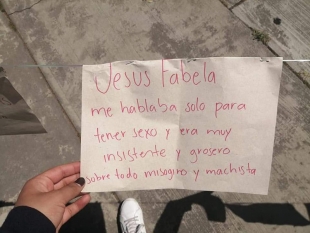 Jesus Fabela
me hablaba solo para
tener sexo y era muy
insistente y grosero.
sobre todo misogino y machista